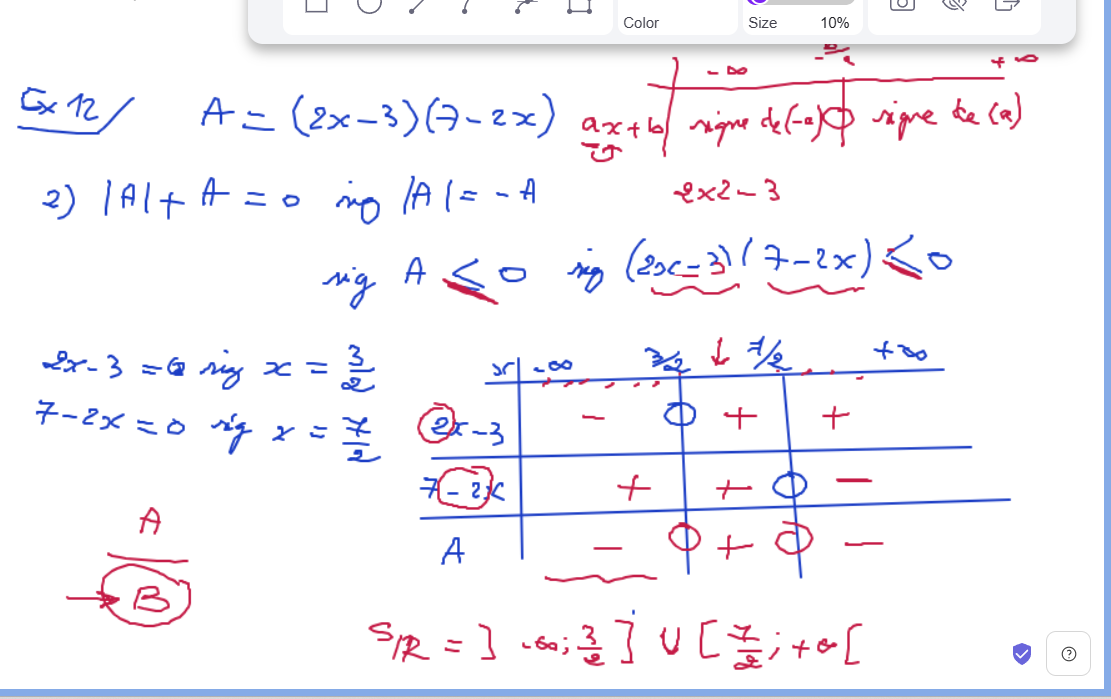 Color Size 10%
-∞ -b/a +∞
Ex 12/ A = (2x-3)(7-2x)
ax+b signe de(-a) 0 signe de (a)
2) |A| + A = 0 sig |A| = -A
2x2-3
sig A ≤ 0 sig (2x-3)(7-2x) ≤ 0
2x-3 = 0 sig x = 3/2
7-2x = 0 sig x = 7/2
x -∞ 3/2 ↓ 7/2 +∞
2x-3 - 0 + +
7-2x + + 0 -
A - 0 + 0 -
A
→ B
S/R = ] -∞; 3/2 ] ∪ [ 7/2 ; +∞ [